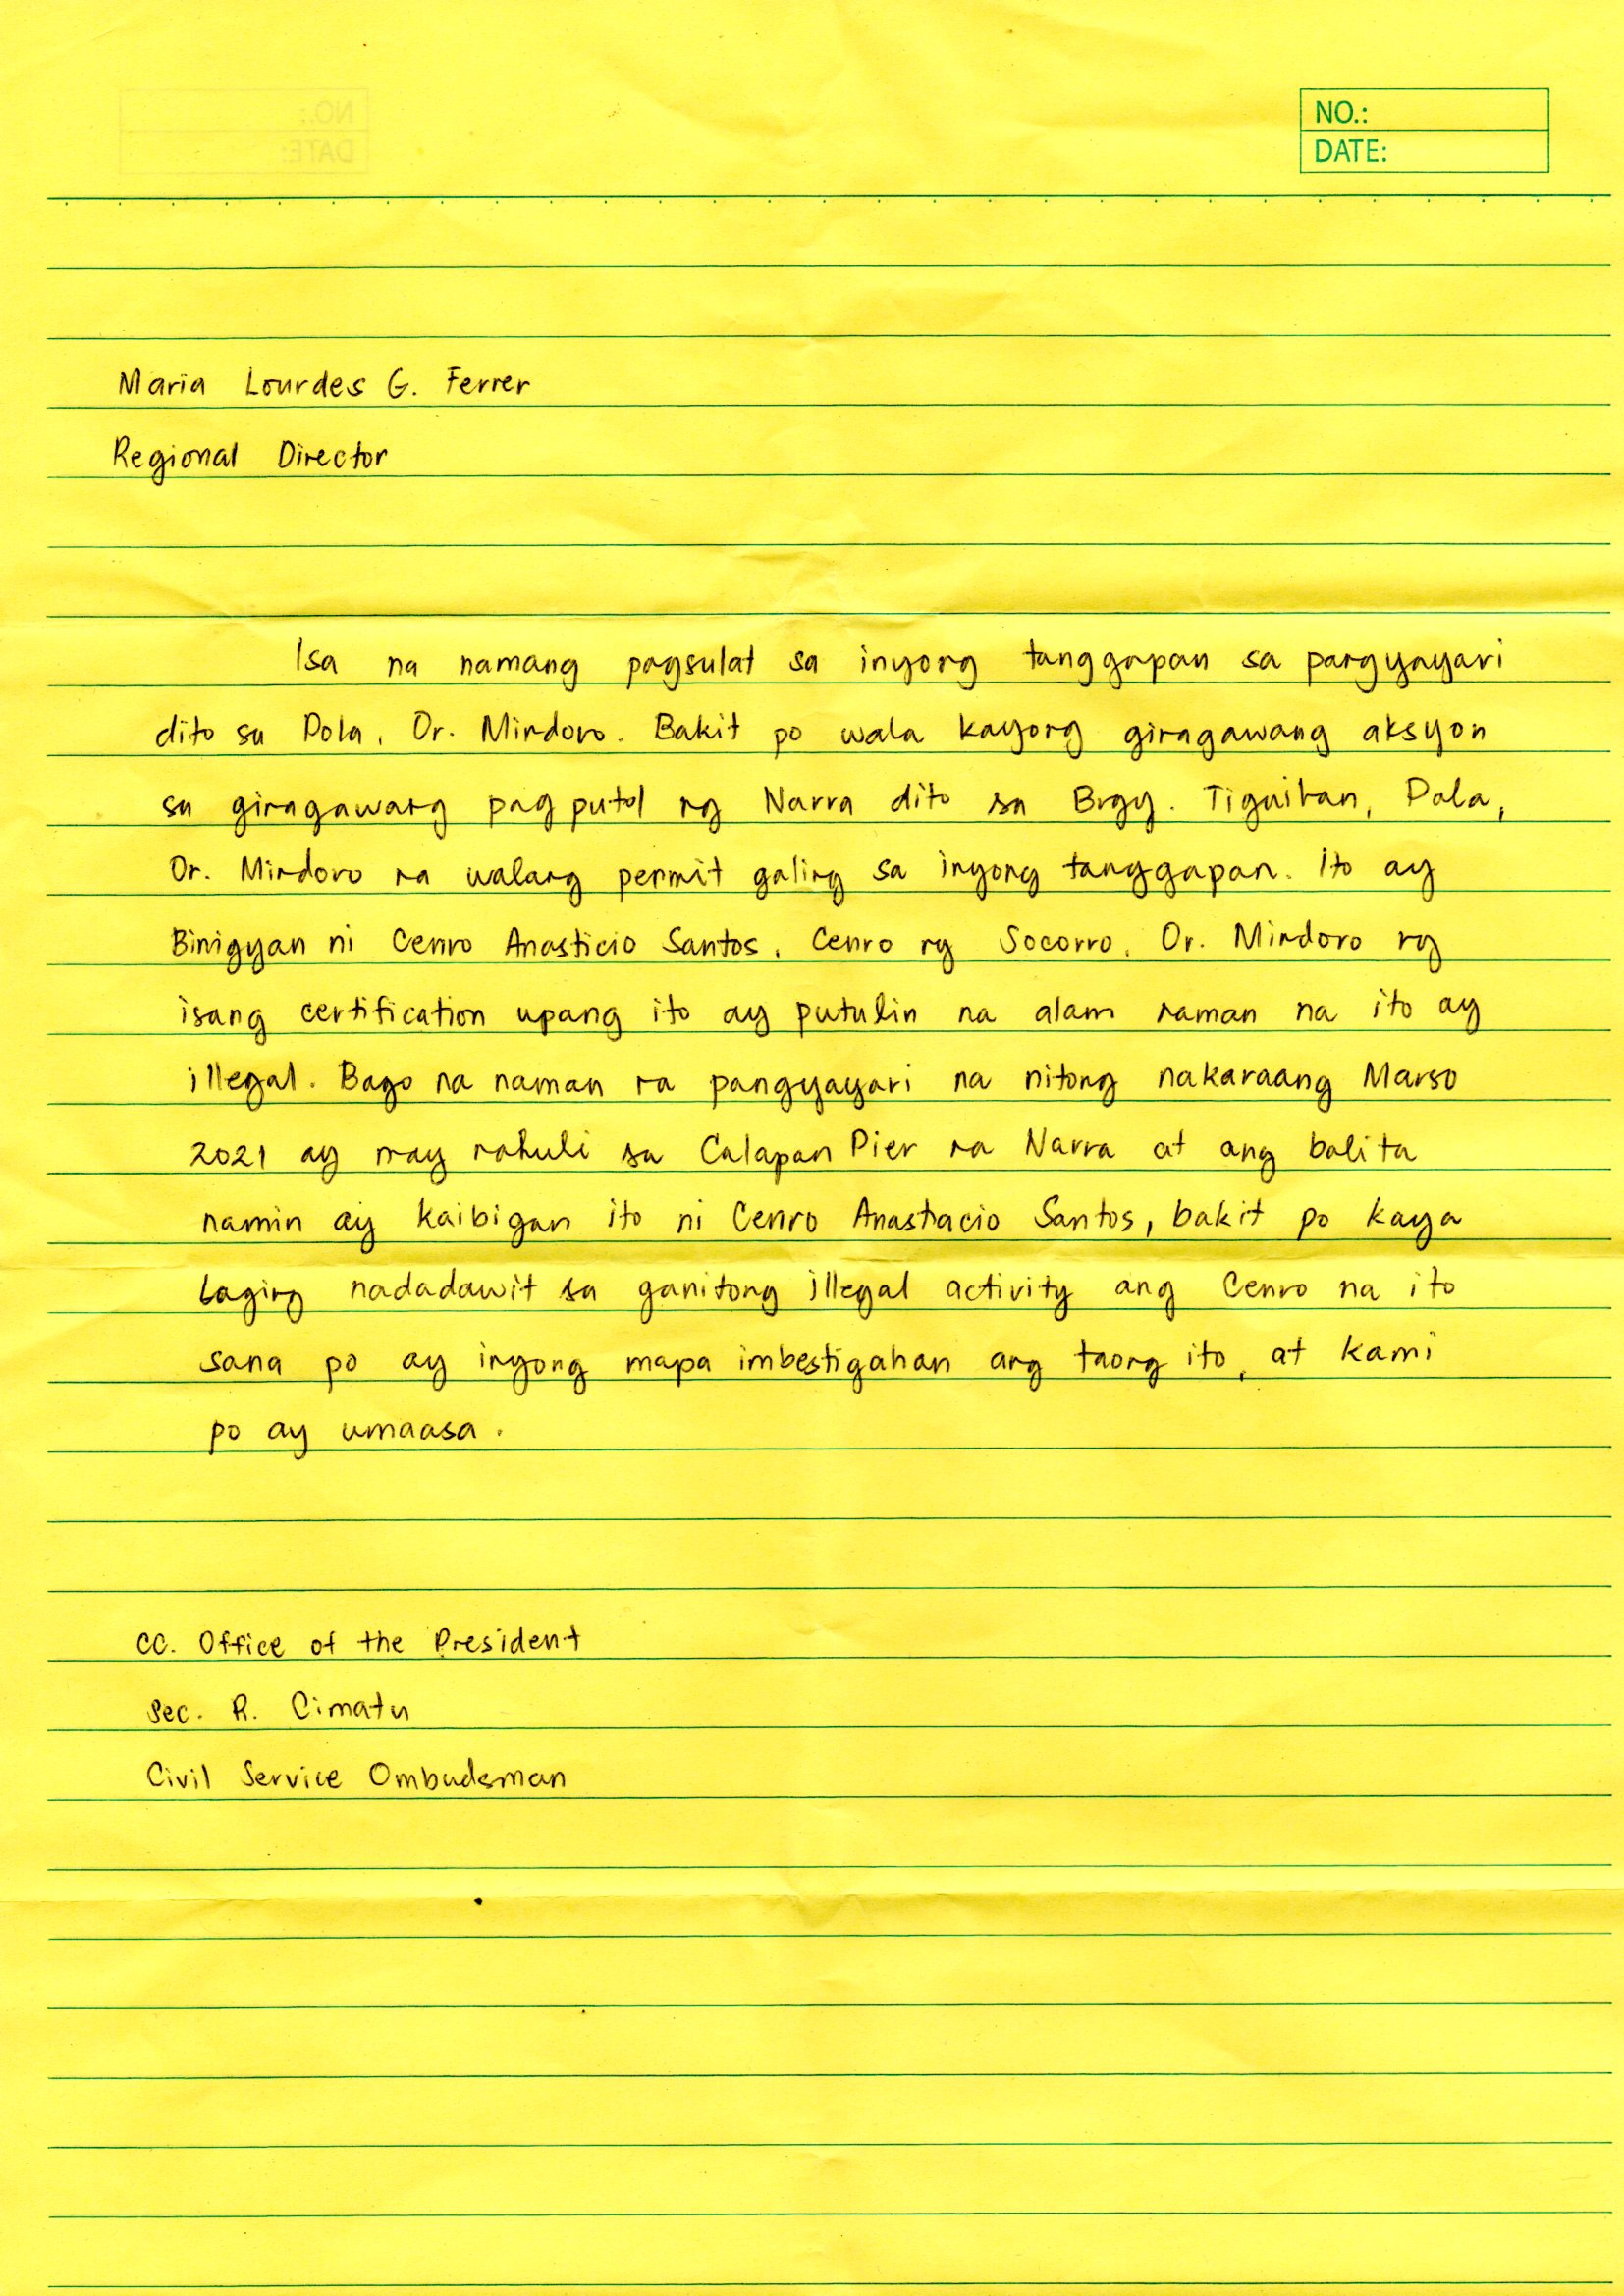 NO.:
DATE:
Maria Lourdes G. Ferrer
Regional Director
Isa na namang pagsulat sa inyong tanggapan sa pangyayari
dito sa Pola, Or. Mindoro. Bakit po wala kayong ginagawang aksyon
sa ginagawang pag putol ng Narra dito sa Brgy. Tiguihan, Pola,
Or. Mindoro na walang permit galing sa inyong tanggapan. Ito ay
Binigyan ni Cenro Anasticio Santos, Cenro ng Socorro, Or. Mindoro ng
isang certification upang ito ay putulin na alam naman na ito ay
illegal. Bago na naman na pangyayari na nitong nakaraang Marso
2021 ay may nahuli sa Calapan Pier na Narra at ang balita
namin ay kaibigan ito ni Cenro Anastacio Santos, bakit po kaya
laging nadadawit sa ganitong illegal activity ang Cenro na ito
sana po ay inyong mapa imbestigahan ang taong ito, at kami
po ay umaasa.
CC. Office of the President
Sec. R. Cimatu
Civil Service Ombudsman